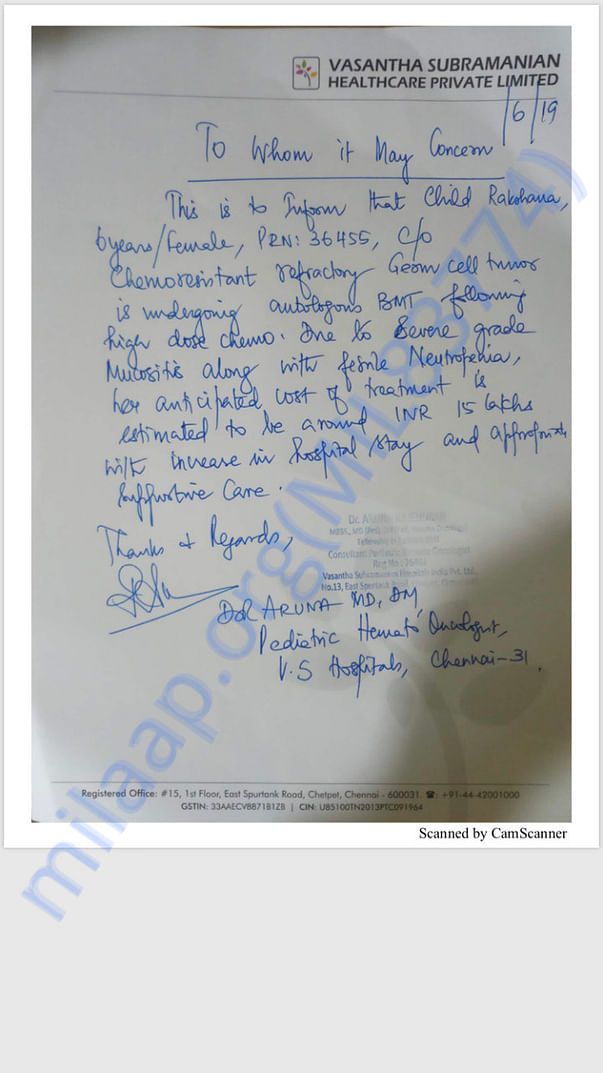 VASANTHA SUBRAMANIAN
HEALTHCARE PRIVATE LIMITED
/6/19
To Whom it May Concern
This is to Inform that Child Rakshana,
6years/Female, PRN: 36455, c/o
Chemoresistant refractory Germ cell tumor
is undergoing autologous BMT following
high dose chemo. Due to Severe grade
Mucositis along with febrile Neutropenia,
her anticipated cost of treatment is
estimated to be around INR 15 lakhs
with increase in hospital stay and appropriate
supportive Care.
Thanks & Regards,
Dr.
Consultant
Vasantha Subramanian Hospitals India Pvt. Ltd.,
No.13, East Spurtank Road,
DR ARUNA MD, DM
Pediatric Hemato Oncologist,
V.S Hospitals, Chennai-31.
Registered Office: #15, 1st Floor, East Spurtank Road, Chetpet, Chennai - 600031. ☎: +91-44-42001000
GSTIN: 33AAECV8871B1ZB | CIN: U85100TN2013PTC091964
Scanned by CamScanner
milaap.org(MNL83774)